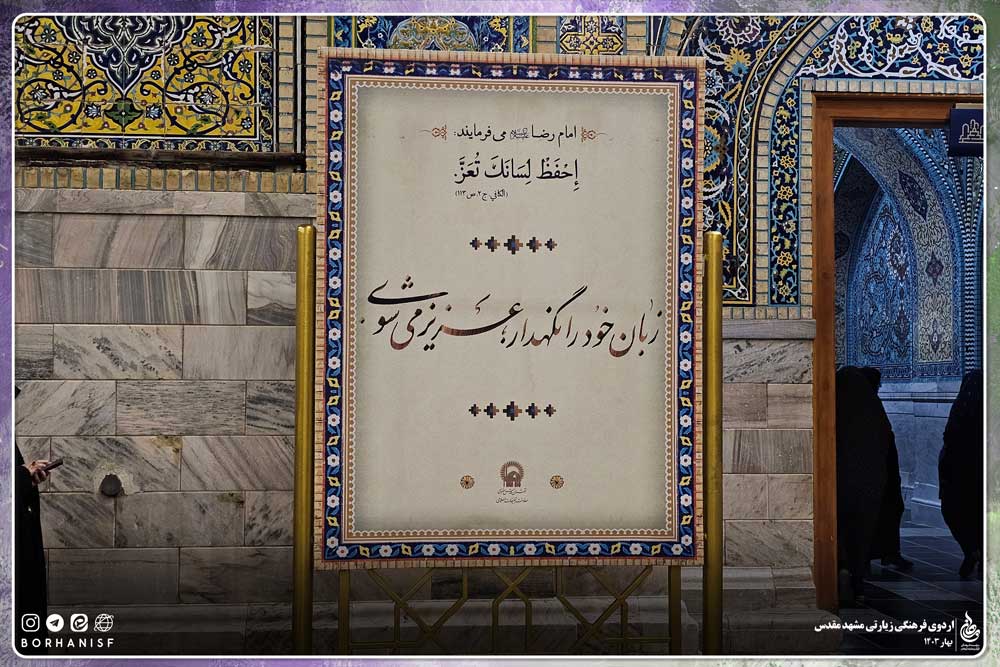 امام رضا علیه‌السلام می‌فرمایند:
إحْفَظْ لِسَانَكَ تُعَزَّ.
(الکافي ج۲ ص۱۱۳)
زبان خود را نگهدار، عزیز می شوی
اردوی فرهنگی زیارتی مشهد مقدس
بهار ۱۴۰۳
BORHANISF